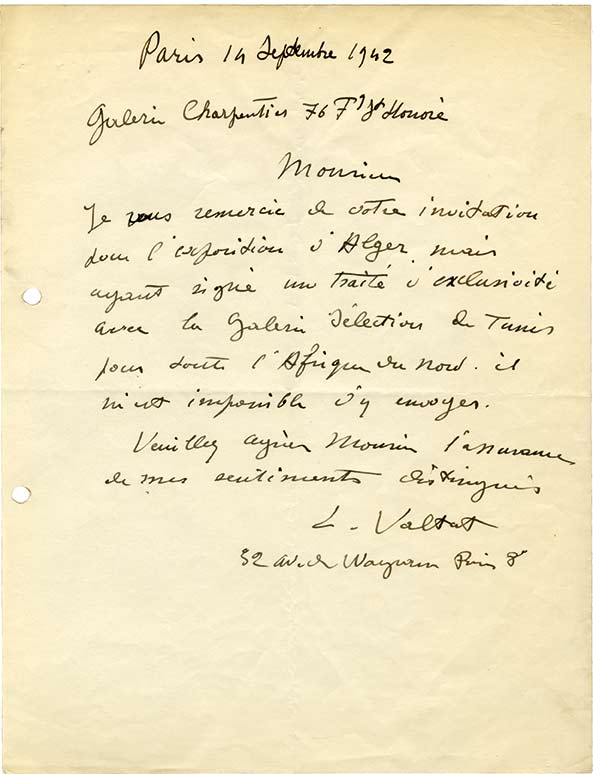 Paris 14 Septembre 1942
Galerie Charpentier 76 Fg St Honoré
Monsieur
Je vous remercie de votre invitation
pour l'exposition d'Alger, mais
ayant signé un traité d'exclusivité
avec la Galerie Sélection de Tunis
pour toute l'Afrique du Nord. il
m'est impossible d'y envoyer.
Veuillez agréer Monsieur l'assurance
de mes sentiments distingués
L. Valtat
32 av. de Wagram Paris 8e